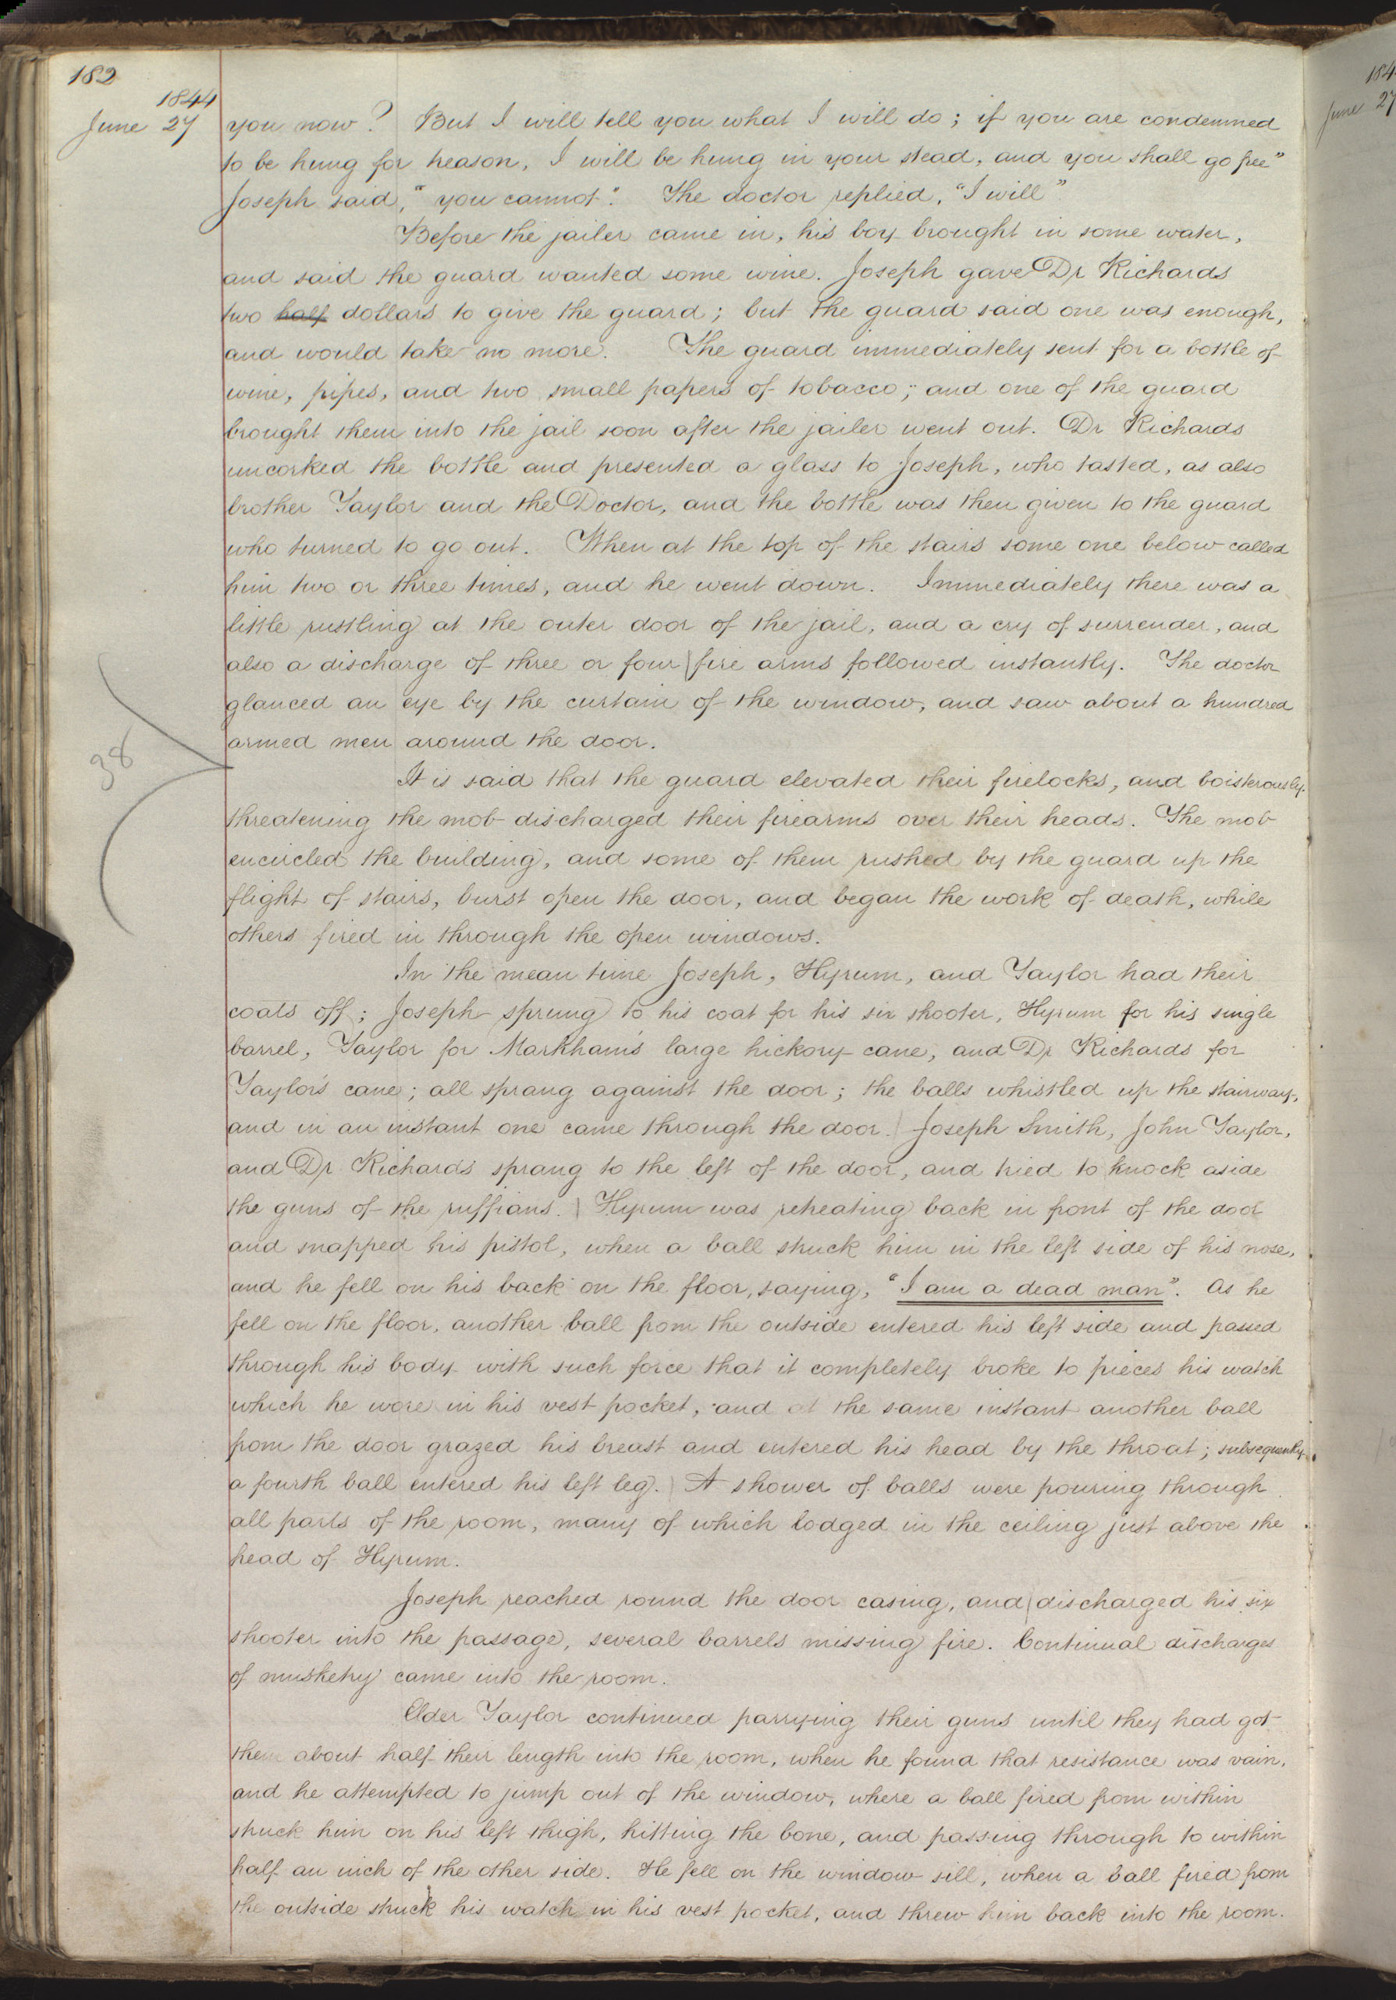 182
1844
June 27
you now? But I will tell you what I will do; if you are condemned
to be hung for treason, I will be hung in your stead, and you shall go free"
Joseph said, "you cannot". The doctor replied, "I will"
Before the jailer came in, his boy brought in some water,
and said the guard wanted some wine. Joseph gave Dr Richards
two half dollars to give the guard; but the guard said one was enough,
and would take no more. The guard immediately sent for a bottle of
wine, pipes, and two small papers of tobacco; and one of the guard
brought them into the jail soon after the jailer went out. Dr Richards
uncorked the bottle and presented a glass to Joseph, who tasted, as also
brother Taylor and the Doctor, and the bottle was then given to the guard
who turned to go out. When at the top of the stairs some one below called
him two or three times, and he went down. Immediately there was a
little rustling at the outer door of the jail, and a cry of surrender, and
also a discharge of three or four fire arms followed instantly. The doctor
glanced an eye by the curtain of the window, and saw about a hundred
armed men around the door.
38
It is said that the guard elevated their firelocks, and boisterously
threatening the mob discharged their firearms over their heads. The mob
encircled the building, and some of them rushed by the guard up the
flight of stairs, burst open the door, and began the work of death, while
others fired in through the open windows.
In the mean time Joseph, Hyrum, and Taylor had their
coats off; Joseph sprung to his coat for his six shooter, Hyrum for his single
barrel, Taylor for Markham's large hickory cane, and Dr Richards for
Taylor's cane; all sprang against the door; the balls whistled up the stairway,
and in an instant one came through the door. Joseph Smith, John Taylor,
and Dr Richards sprang to the left of the door, and tried to knock aside
the guns of the ruffians. Hyrum was retreating back in front of the door
and snapped his pistol, when a ball struck him in the left side of his nose,
and he fell on his back on the floor, saying, "I am a dead man". As he
fell on the floor, another ball from the outside entered his left side and passed
through his body with such force that it completely broke to pieces his watch
which he wore in his vest pocket, and at the same instant another ball
from the door grazed his breast and entered his head by the throat; subsequently
a fourth ball entered his left leg. A shower of balls were pouring through
all parts of the room, many of which lodged in the ceiling just above the
head of Hyrum.
Joseph reached round the door casing, and discharged his six
shooter into the passage, several barrels missing fire. Continual discharges
of musketry came into the room.
Elder Taylor continued parrying their guns until they had got
them about half their length into the room, when he found that resistance was vain,
and he attempted to jump out of the window, where a ball fired from within
struck him on his left thigh, hitting the bone, and passing through to within
half an inch of the other side. He fell on the window sill, when a ball fired from
the outside struck his watch in his vest pocket, and threw him back into the room.
184
June 27